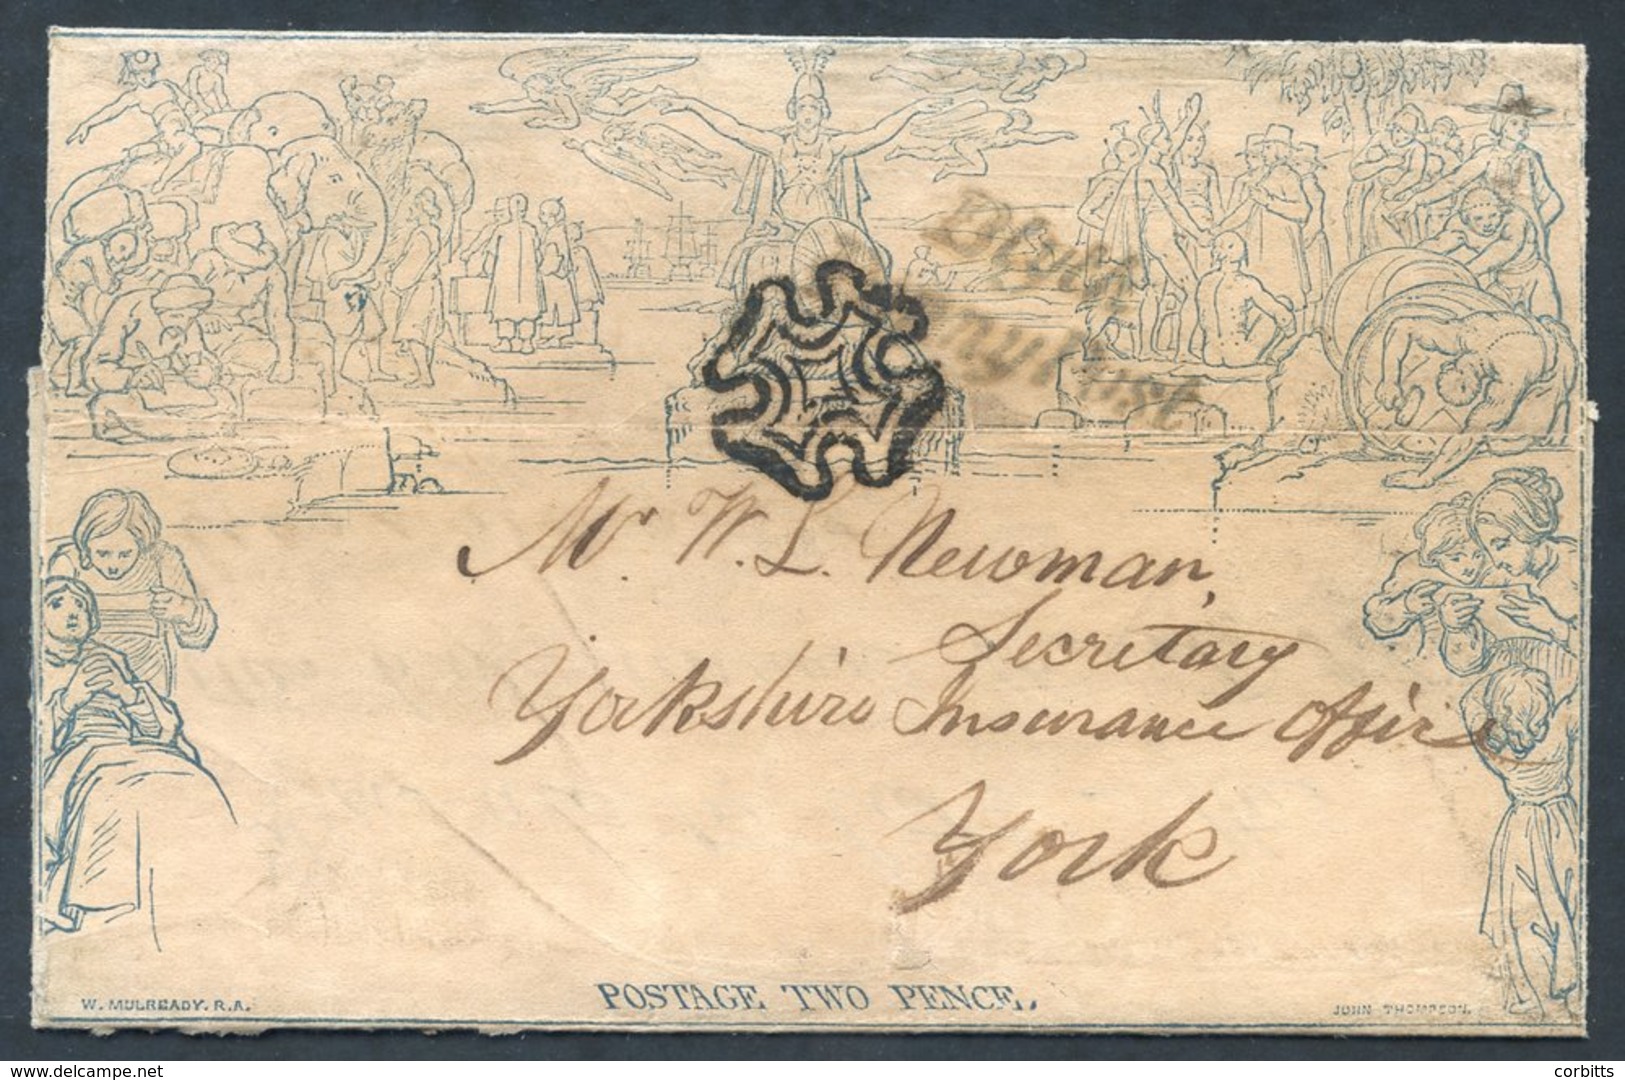 Blyth
Penny Post
Mr. W. L. Newman,
Secretary
Yorkshire Insurance Office
York
POSTAGE TWO PENCE.
W. MULREADY. R.A.
JOHN THOMPSON.
delcampe.net
corbitts